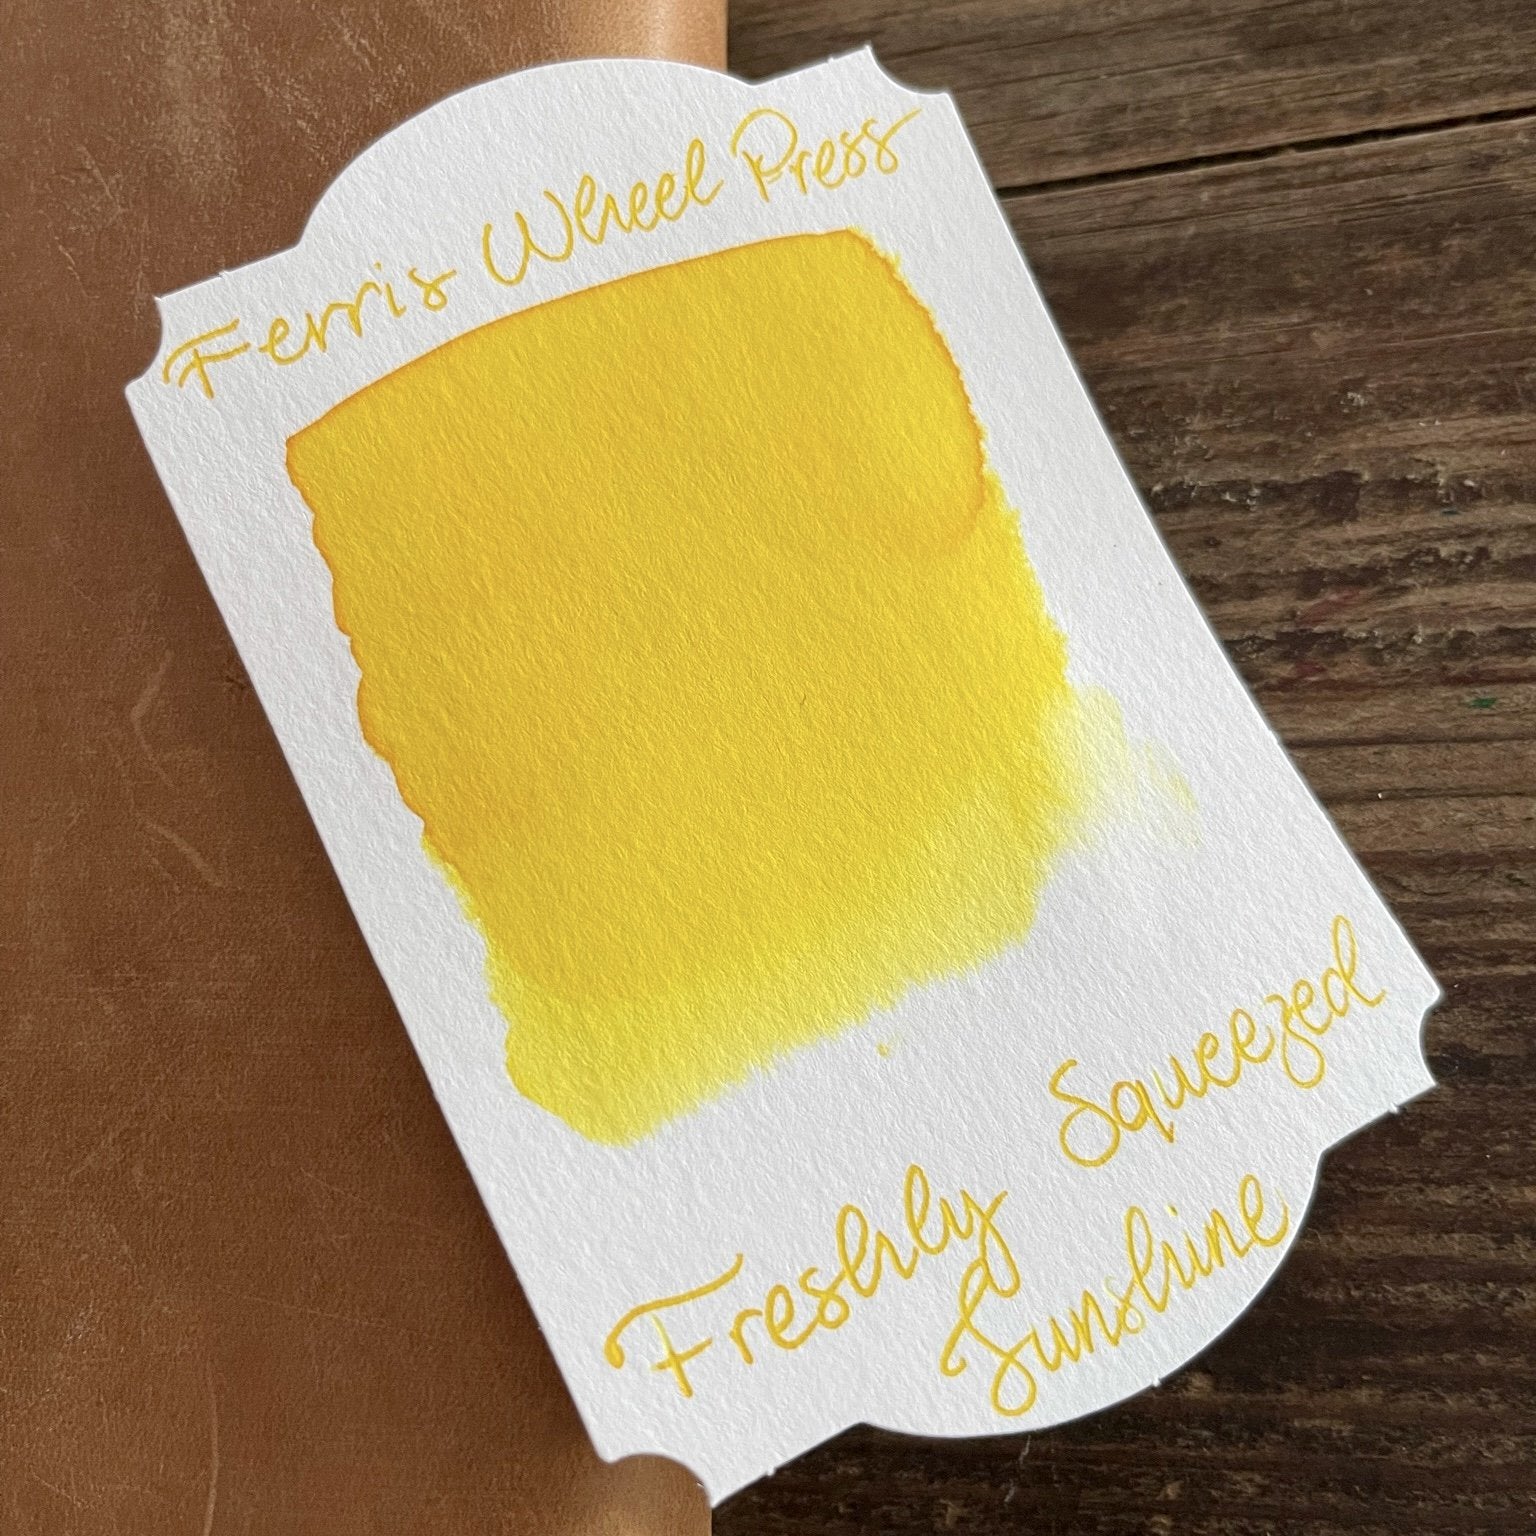 Ferris Wheel Press
Freshly Squeezed
Sunshine